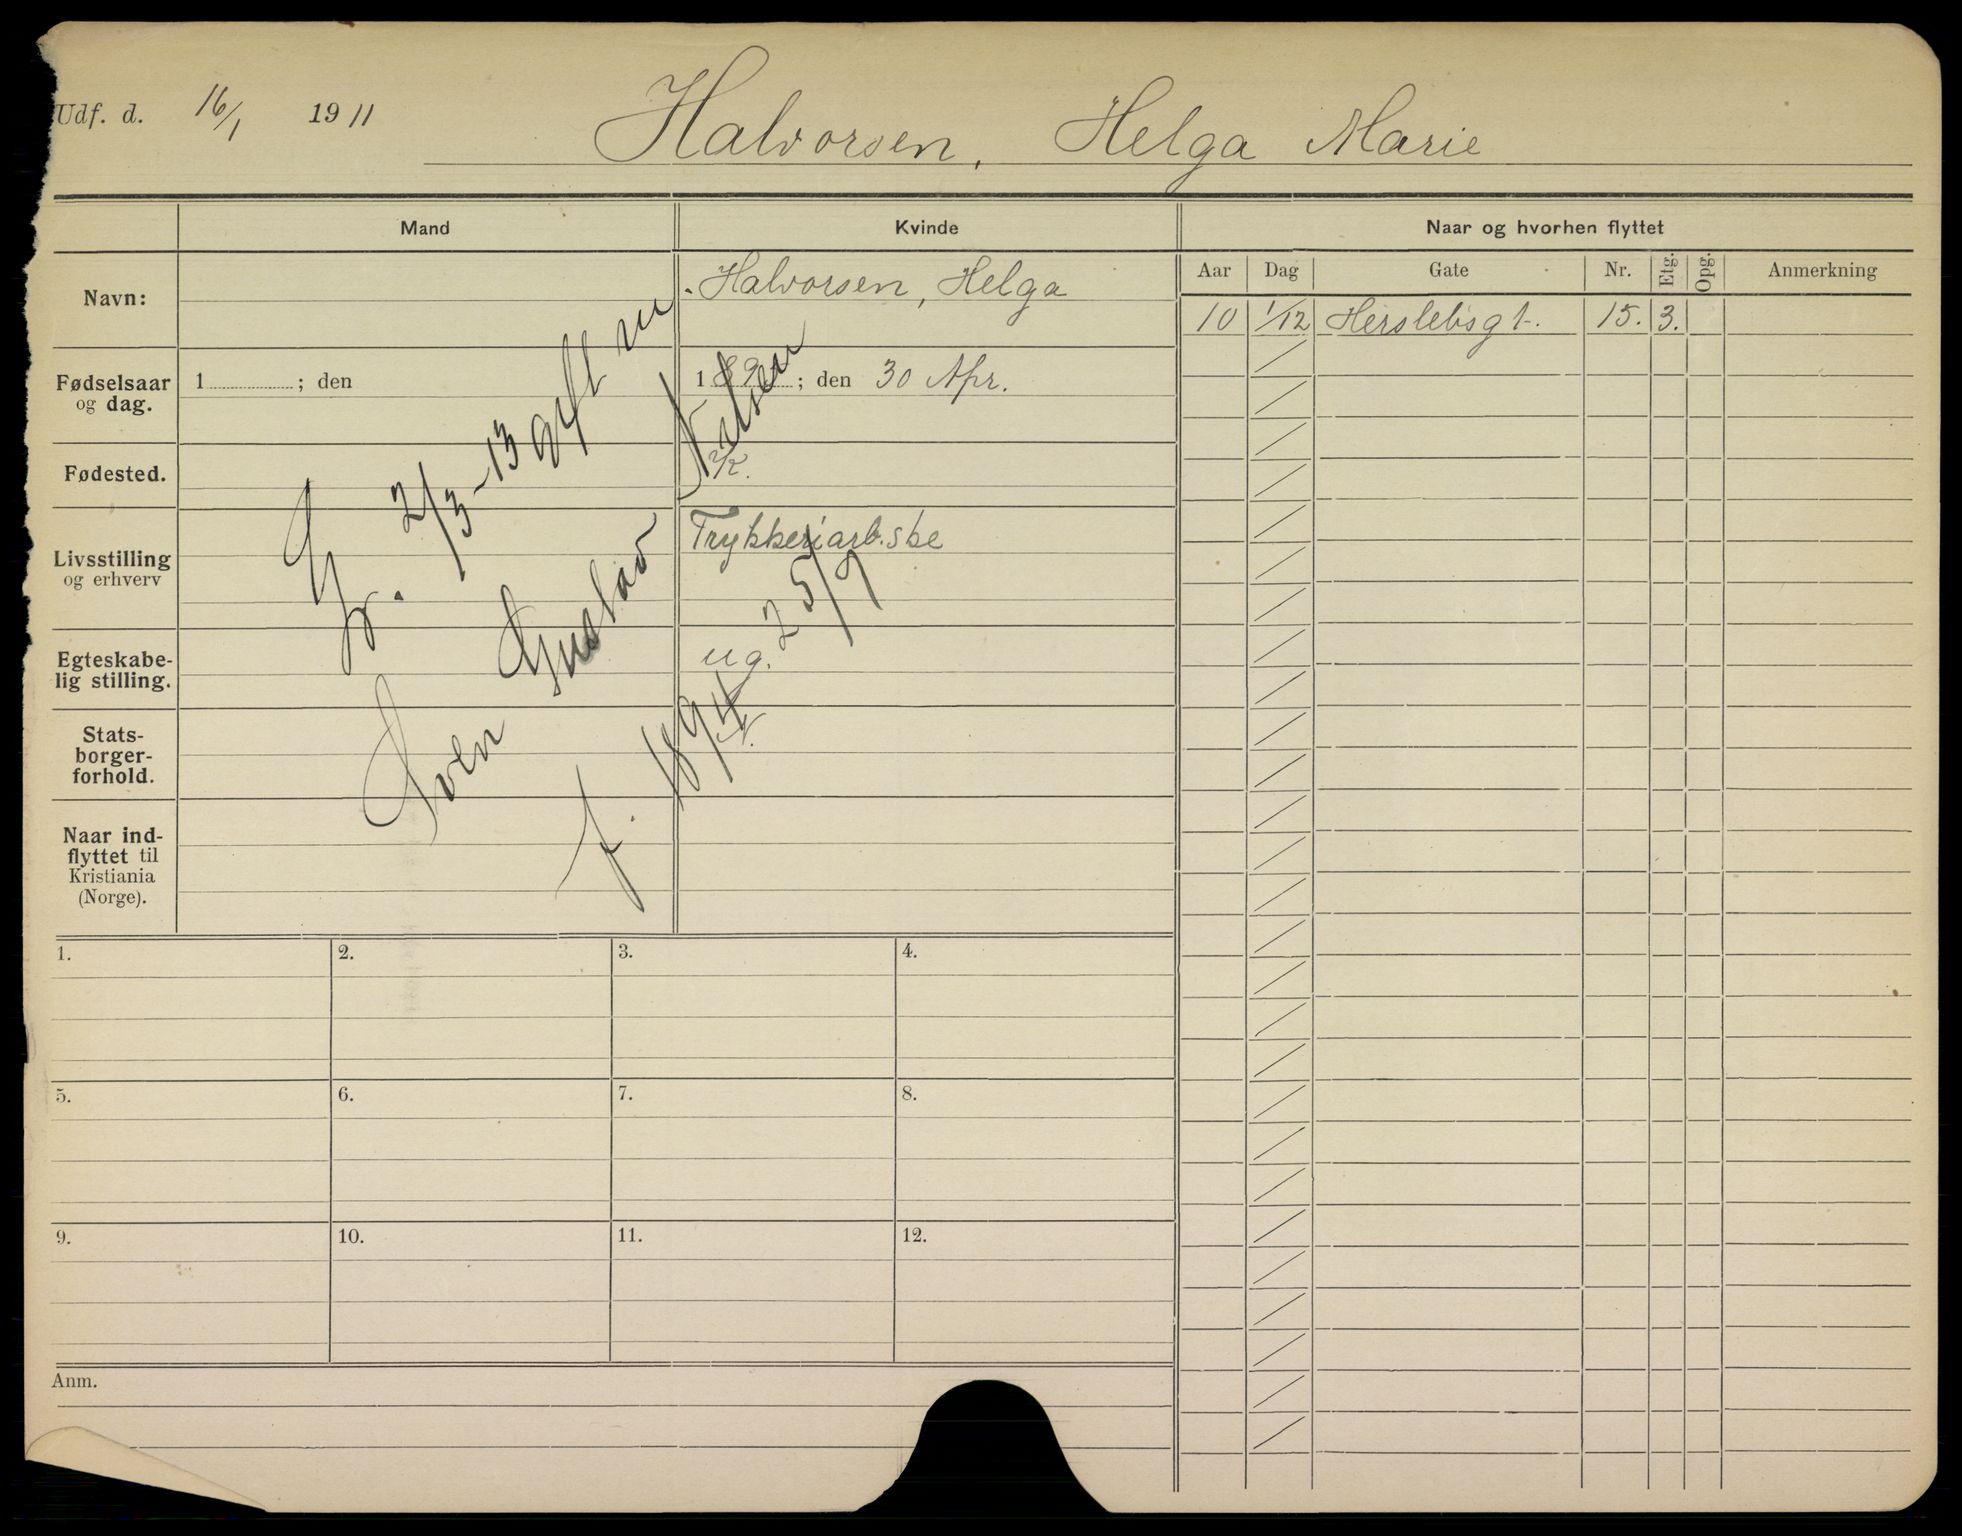 Udf. d. 16/1 1911
Halvorsen, Helga Marie
Mand
Kvinde
Naar og hvorhen flyttet
Navn:
Halvorsen, Helga
Aar
Dag
Gate
Nr.
Etg.
Opg.
Anmerkning
10 1/12 Herslebsgt. 15. 3.
Fødselsaar
og dag.
1 ; den
189 ; den 30 Apr.
Fødested.
Livsstilling
og erhverv
Trykkeriarb.ske
Egteskabe-
lig stilling.
ug.
Stats-
borger-
forhold.
N.
Naar ind-
flyttet til
Kristiania
(Norge).
2/3-13 gift m
Sven Gustav Nilsen
f. 1894 25/7
1.
2.
3.
4.
5.
6.
7.
8.
9.
10.
11.
12.
Anm.